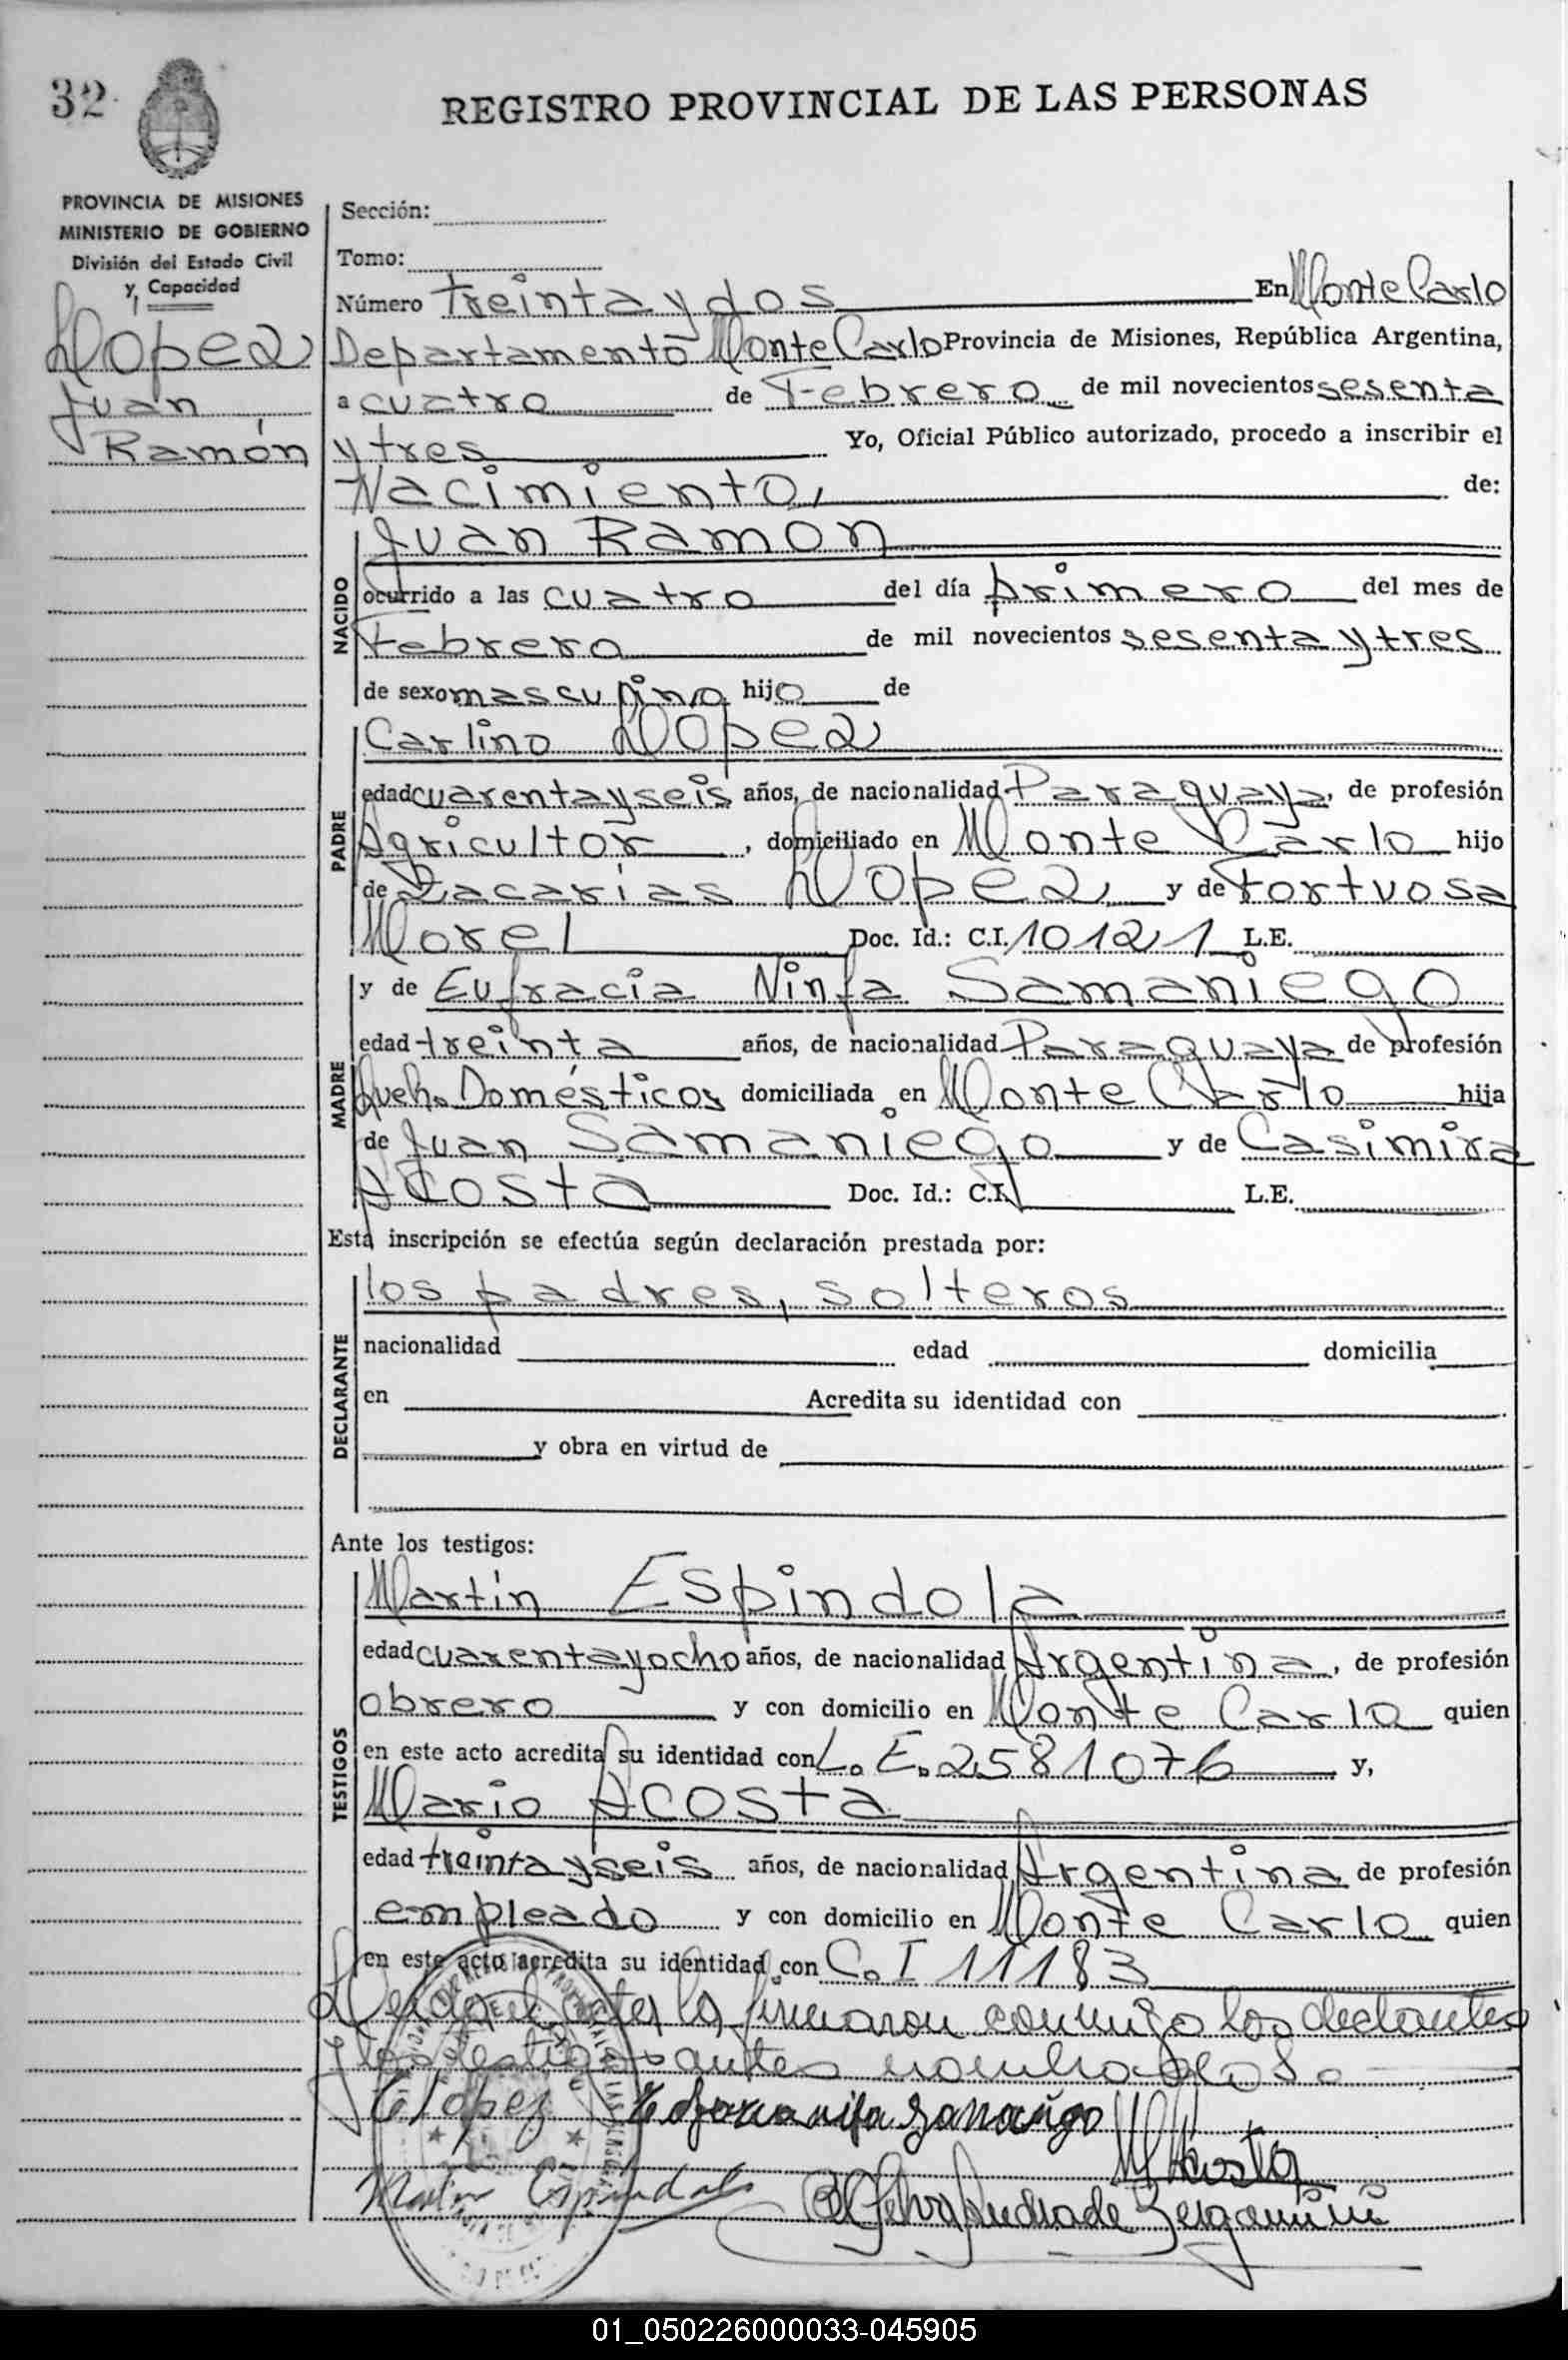 32
REGISTRO PROVINCIAL DE LAS PERSONAS
PROVINCIA DE MISIONES
MINISTERIO DE GOBIERNO
División del Estado Civil
y Capacidad
Lopez
Juan
Ramón
Sección:
Tomo:
Número treinta y dos En Monte Carlo
Departamento Monte Carlo Provincia de Misiones, República Argentina,
a cuatro de Febrero de mil novecientos sesenta
y tres Yo, Oficial Público autorizado, procedo a inscribir el
Nacimiento, de:
NACIDO
Juan Ramon
ocurrido a las cuatro del día primero del mes de
Febrero de mil novecientos sesenta y tres
de sexo masculino hijo de
PADRE
Carlino Lopez
edad cuarenta y seis años, de nacionalidad Paraguaya, de profesión
Agricultor, domiciliado en Monte Carlo hijo
de Zacarías Lopez y de Fortuosa
Morel Doc. Id.: C.I. 101121 L.E.
MADRE
y de Eufracia Ninfa Samaniego
edad treinta años, de nacionalidad Paraguaya de profesión
Queh. Domésticos domiciliada en Monte Carlo hija
de Juan Samaniego y de Casimira
Acosta Doc. Id.: C.I. L.E.
Esta inscripción se efectúa según declaración prestada por:
DECLARANTE
los padres, solteros
nacionalidad edad domicilia
en Acredita su identidad con
y obra en virtud de
Ante los testigos:
TESTIGOS
Martín Espindola
edad cuarenta y ocho años, de nacionalidad Argentina, de profesión
obrero y con domicilio en Monte Carlo quien
en este acto acredita su identidad con L. E. 2581076 y,
Mario Acosta
edad treinta y seis años, de nacionalidad Argentina de profesión
empleado y con domicilio en Monte Carlo quien
en este acto acredita su identidad con C. I 11183
Leida el acta la firmaron conmigo los declantes
y los testigos antes nombrados.
C Lopez
M Acosta
Martin Espindola
01_050226000033-045905